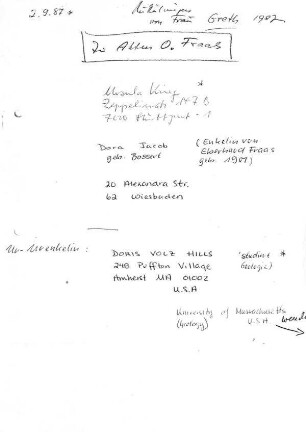 2.9.87 *
von Frau Groth 1987
Zu Albert O. Fraas
Ursula King *
Zeppelinstr 147 B
7000 Stuttgart - 1
Dora Jacob (Enkelin von
geb. Bossert Eberhard Fraas
geb 1901)
20 Alexandra Str.
62 Wiesbaden
Ur-Urenkelin: DORIS VOLZ HILLS studiert *
248 Puffton Village Geologie)
Amherst MA 01002
U.S.A
University of Massachusetts
(Geology) U.S.A